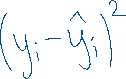 (yᵢ - ŷᵢ)²